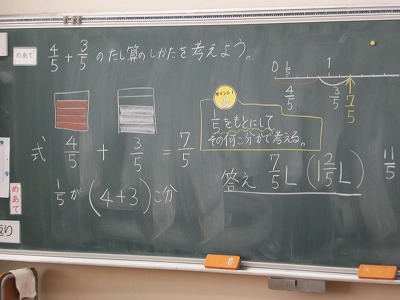 めあて
4/5 + 3/5 のたし算のしかたを考えよう。
0 1/5 1
4/5 3/5 7/5
ポイント!
1/5をもとにして
その何こ分かで考える。
式 4/5 + 3/5 = 7/5
1/5が(4+3)こ分
答え 7/5L (1 2/5L)
めあて